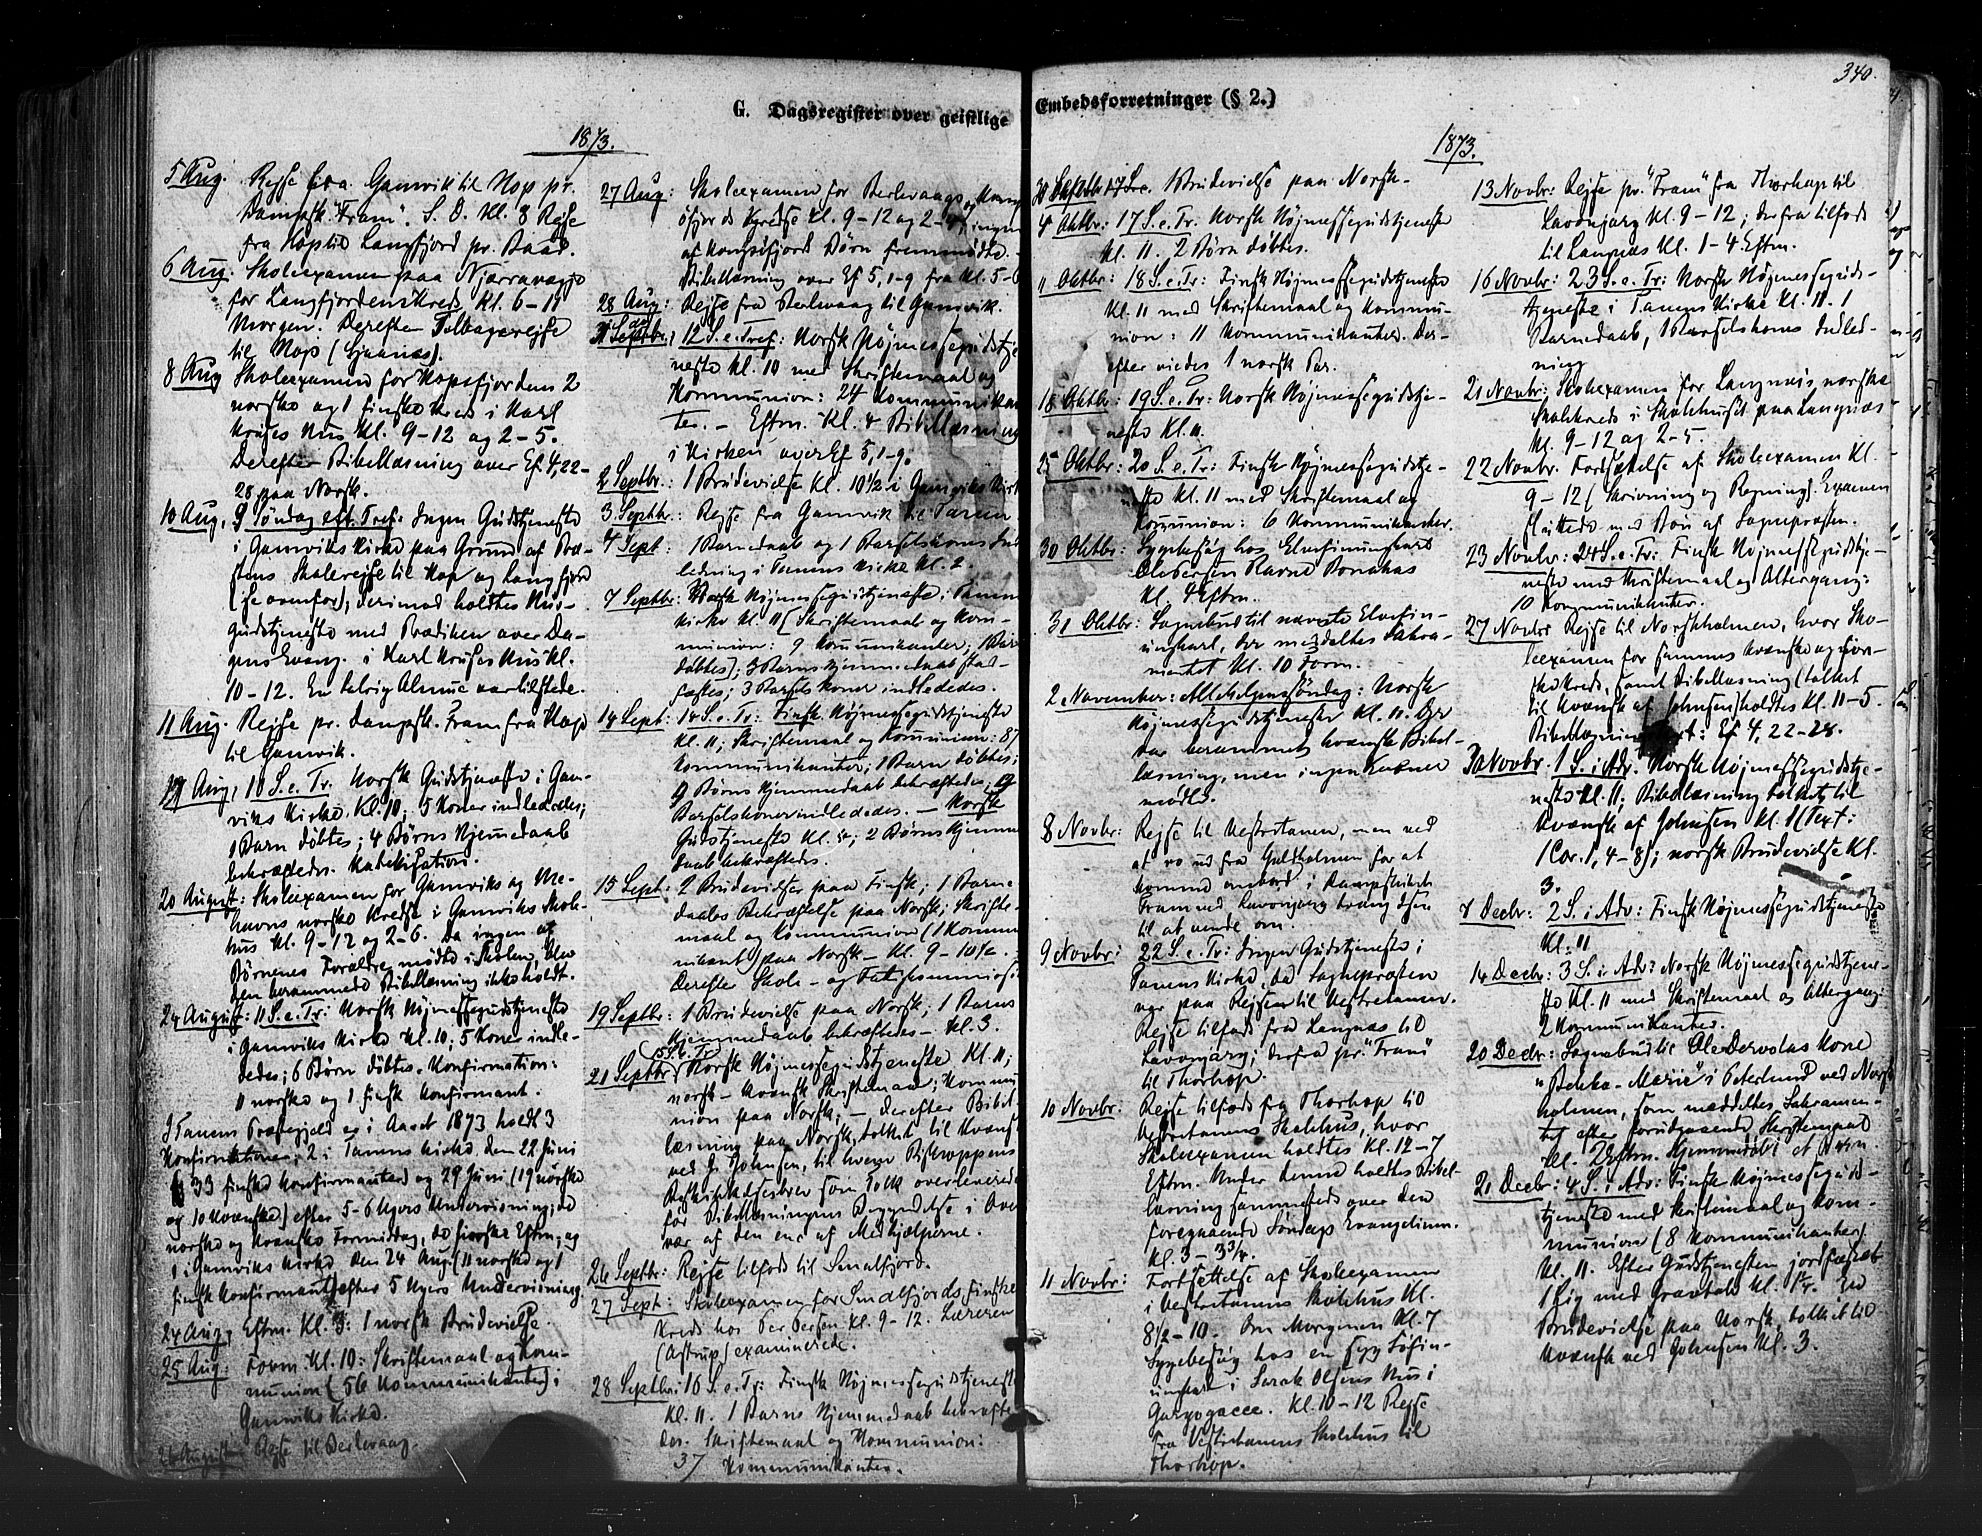 340.
G. Dagsregister over geistlige Embedsforretninger (§ 2.)
1873.
5 Aug. Rejse fra Gamvik til Hop pr.
Dampsk. "Fram". S. D. Kl. 8 Rejse
fra Hop til Langfjord pr. Baad.
6 Aug. Skoleexamen paa
for Langfjordens Kreds Kl. 6-11
Morgen. Derefter Tilbagerejse
til Hop
8 Aug Skoleexamen for Hopsfjordens 2
norske og 1 finske Kreds i Karl
Kruses Hus Kl. 9-12 og 2-5.
Derefter Bibellæsning over Ef. 4, 22-
28 paa Norsk.
10 Aug, 9 Søndag eft. Tref: Ingen Gudstjeneste
i Gamviks Kirke paa Grund af Præ-
stens Skolerejse til Hop og Langfjord
(se ovenfor), derimod holdtes Hus-
gudstjeneste med Prædiken over Da-
gens Evang. i Karl Kruses Hus Kl.
10-12. En talrig Almue var tilstede.
11 Aug. Rejse pr. Dampsk. Fram fra Hop
til Gamvik.
Aug, 10 S. e. Tr. Norsk Gudstjeneste i Gam-
viks Kirke. Kl. 10; 5 Koner indlededes;
1 Barn døbtes; 4 Børns Hjemmedaab
bekræftedes. Katekisation.
20 August: Skoleexamen for Gamviks og Me-
havns norske Kredse i Gamviks Skole-
hus Kl. 9-12 og 2-6. Da ingen af
Børnenes Forældre mødte i Skolen, blev
den berammede Bibellæsning ikke holdt.
24 August: 11 S. e. Tr: Norsk Højmessegudstjeneste
i Gamviks Kirke Kl. 10; 5 Koner indle-
dedes; 6 Børn døbtes. Konfirmation:
11 norske og 1 finsk Konfirmant.
I Tanens Præstegjeld er i Aaret 1873 holdt 3
Konfirmationer; 2 i Tanens Kirke den 22 Juni
33 finske Konfirmanter) og 29 Juni (19 norske
og 10 Kvænske) efter 5-6 Ugers Undervisning; de
norske og Kvænske Formiddag, de finske Eftm.; og
1 i Gamviks Kirke den 24 Aug. (11 norske og 1
finsk Konfirmant) efter 5 Ugers Undervisning.
24 Aug, Eftm. Kl. 3: 1 norsk Brudevielse.
25 Aug: Form. Kl. 10: Skriftemaal og Kom-
munion (56 Kommunikanter) i
Gamviks Kirke.
26 August Rejse til Berlevaag.
27 Aug: Skoleexamen for Berlevaags og Kong
øfjords Kredse Kl. 9-12 og 2- ingen
af Kongsøfjords Børn fremmødte.
Bibellæsning over Ef 5, 1-9 fra Kl. 5-6
28 Aug: Rejse fra Berlevaag til Gamvik.
31 12 S. e. Tref: Norsk Højmessegudstje
neste Kl. 10 med Skriftemaal og
Kommunion: 24 Kommunikan
ter. - Eftm. Kl. 4 Bibellæsning
i Kirken over Ef 5, 1-9.
2 Septbr.: 1 Brudevielse Kl. 10½ i Gamviks Kirk
3 Septbr.: Rejse fra Gamvik til Tanen
4 Sept: 1 Barnedaab og 1 Barselskones Ind
ledning i Tanens Kirke Kl. 2.
7 Septbr: Norsk Højmessegudstjeneste i Tanens
Kirke Kl. 11 (Skriftemaal og Kom-
munion: 9 Kommunikanter; 1 Barn
døbtes); 3 Børns Hjemmedaab stad-
fæstes; 3 Barselskoner indlededes.
14 Sept: 14 S. e. Tr: Finsk Højmessegudstjeneste
Kl. 11; Skriftemaal og Kommunion: 87
Kommunikanter; 1 Barn døbtes;
9 Børns Hjemmedaab bekræftedes;
Barselskoner indlededes. - Norsk
Gudstjeneste Kl. 2 Børns Hjemme
daab bekræftedes.
15 Sept: 2 Brudevielser paa Finsk; 1 Barne
daabs Bekræftelse paa Norsk; Skrifte-
maal og Kommunion (1 Kommu
nikant) paa Norsk - Kl. 9-10½.
Derefter Skole- og Fattigkommission
19 Septbr: 1 Brudevielse paa Norsk; 1 Barns
Hjemmedaab bekræftedes - Kl. 3.
21 Septbr (15 S. e. Tr.) Norsk Højmessegudstjeneste Kl. 11;
norsk-kvænsk Skriftemaal; Kommu
nion paa Norsk; - derefter Bibel
læsning paa Norsk, tolket til Kvænsk
ved J. Johnsen, til hvem Biskoppens
Beskikkelsesbrev som Tolk overleveredes
før Bibellæsningens Begyndelse i Over
vær af den ene af Medhjælperne.
26 Septbr: Rejse tilfods til Smalfjord.
27 Sept: Skoleexamen for Smalfjords finske
Kreds hos Per Persen Kl. 9-12. Læreren
(Astrup) examinerede.
28 Septbr: 16 S. e. Tr: Finsk Højmessegudstjenest
Kl. 11. 1 Barns Hjemmedaab bekræfte
des. Skriftemaal og Kommunion:
37 Kommunikanter.
1873.
30 Septbr Brudevielse paa Norsk.
4 Oktbr: 17 S. e. Tr. Norsk Højmessegudstjeneste
Kl. 11. 2 Børn døbtes.
11 Oktbr: 18 S. e. Tr: Finsk Højmessegudstjeneste
Kl. 11 med Skriftemaal og Kommu-
nion: 11 Kommunikanter. Der-
efter viedes 1 norsk Par.
18 Oktbr: 19 S. e. Tr: Norsk Højmessegudstje-
neste Kl. 11.
25 Oktbr: 20 S. e. Tr: Finsk Højmessegudstje-
ste Kl. 11 med Skriftemaal og
Kommunion: 6 Kommunikanter.
30 Oktbr: Sygebesøg hos
Kl. Eftm.
31 Oktbr: Sognebud til næste Elvefin-
ungkarl, der meddeltes Sakra-
mentet Kl. 10 Form.
2 November: Allehelgenssøndag: Norsk
Højmessegudstjeneste Kl. 11. Der
var berammet kvænsk Bibel-
læsning, men ingen Kvæner
mødte.
8 Novbr: Rejse til Vestretanen, men ved
at ro ud fra Guldholmen for at
komme ombord i Dampskibet
Fram ved Lavonjarg tvang
til at vende om.
9 Novbr: 22 S. e. Tr: Ingen Gudstjeneste i
Tanens Kirke, da Sognepræsten
var paa Rejsen til Vestretanen.
Rejse tilfods fra Langnæs til
Lavonjarg; derfra pr. "Fram"
til Thorhop.
10 Novbr: Rejse tilfods fra Thorhop til
Vestretanens Skolehus, hvor
Skoleexamen holdtes Kl. 12-7
Eftm. Under denne holdtes Bibel-
læsning sammesteds over den
foregaaende Søndags Evangelium.
Kl. 3-3¾.
11 Novbr: Fortsættelse af Skoleexamen
i Vestretanens Skolehus Kl.
8½-10. Om Morgenen Kl. 7
Sygebesøg hos en syg Søfin-
ungkarl i Sarak Olsens Hus i
Kl. 10-12 Rejse
fra Vestretanens Skolehus til
Thorhop.
13 Novbr: Rejse pr. "Fram" fra Thorhop til
Lavonjarg Kl. 9-12; derfra tilfods
til Langnæs Kl. 1-4 Eftm.
16 Novbr: 23 S. e. Tr: Norsk Højmesseguds-
tjeneste i Tanens Kirke Kl. 11. 1
Barnedaab, 1 Barselskones Indled-
ning
21 Novbr: Skoleexamen for Langnæs norske
Skolekreds i Skolehuset paa Langnæs
Kl. 9-12 og 2-5.
22 Novbr. Fortsættelse af Skoleexamen Kl.
9-12 (Skrivning og Regning). Examen
sluttede med Bøn af Sognepræsten.
23 Novbr: 24 S. e. Tr: Finsk Højmessegudstje-
neste med Skriftemaal og Altergang:
10 Kommunikanter.
27 Novbr Rejse til Norskholmen, hvor Sko-
leexamen for sammes kvænske og nor-
ske Kreds, samt Bibellæsning (tolket
til Kvænsk af Johnsen) holdtes Kl. 11-5.
Bibellæsningens : Ef 4, 22-28.
30 Novbr. 1 S. i Adv. Norsk Højmessegudstje-
neste Kl. 11; Bibellæsning tolket til
Kvænsk af Johnsen Kl. 1 (Text:
1 Cor. 1, 4-8); norsk Brudevielse Kl.
3.
7 Decbr: 2 S. i Adv: Finsk Højmessegudstjeneste
Kl. 11
14 Decbr: 3 S. i Adv: Norsk Højmessegudstjene-
ste Kl. 11 med Skriftemaal og Altergang:
2 Kommunikanter.
20 Decbr: Sognebud til Ole Dervolas Kone
"Bekka-Marie" i Østerlund ved Norsk
holmen, som meddeltes Sakramen-
tet efter forudgaaende Skriftemaal
Kl. 2 Eftm. Hjemmedøbt et Barn.
21 Decbr: 4 S. i Adv: Finsk Højmessegud-
tjeneste med Skriftemaal og Kom-
munion (8 Kommunikanter)
Kl. 11. Efter Gudstjenesten jordfæstet
1 Lig med Gravtale Kl. 1¼. En
Brudevielse paa Norsk, tolket til
Kvænsk ved Johnsen Kl. 3.